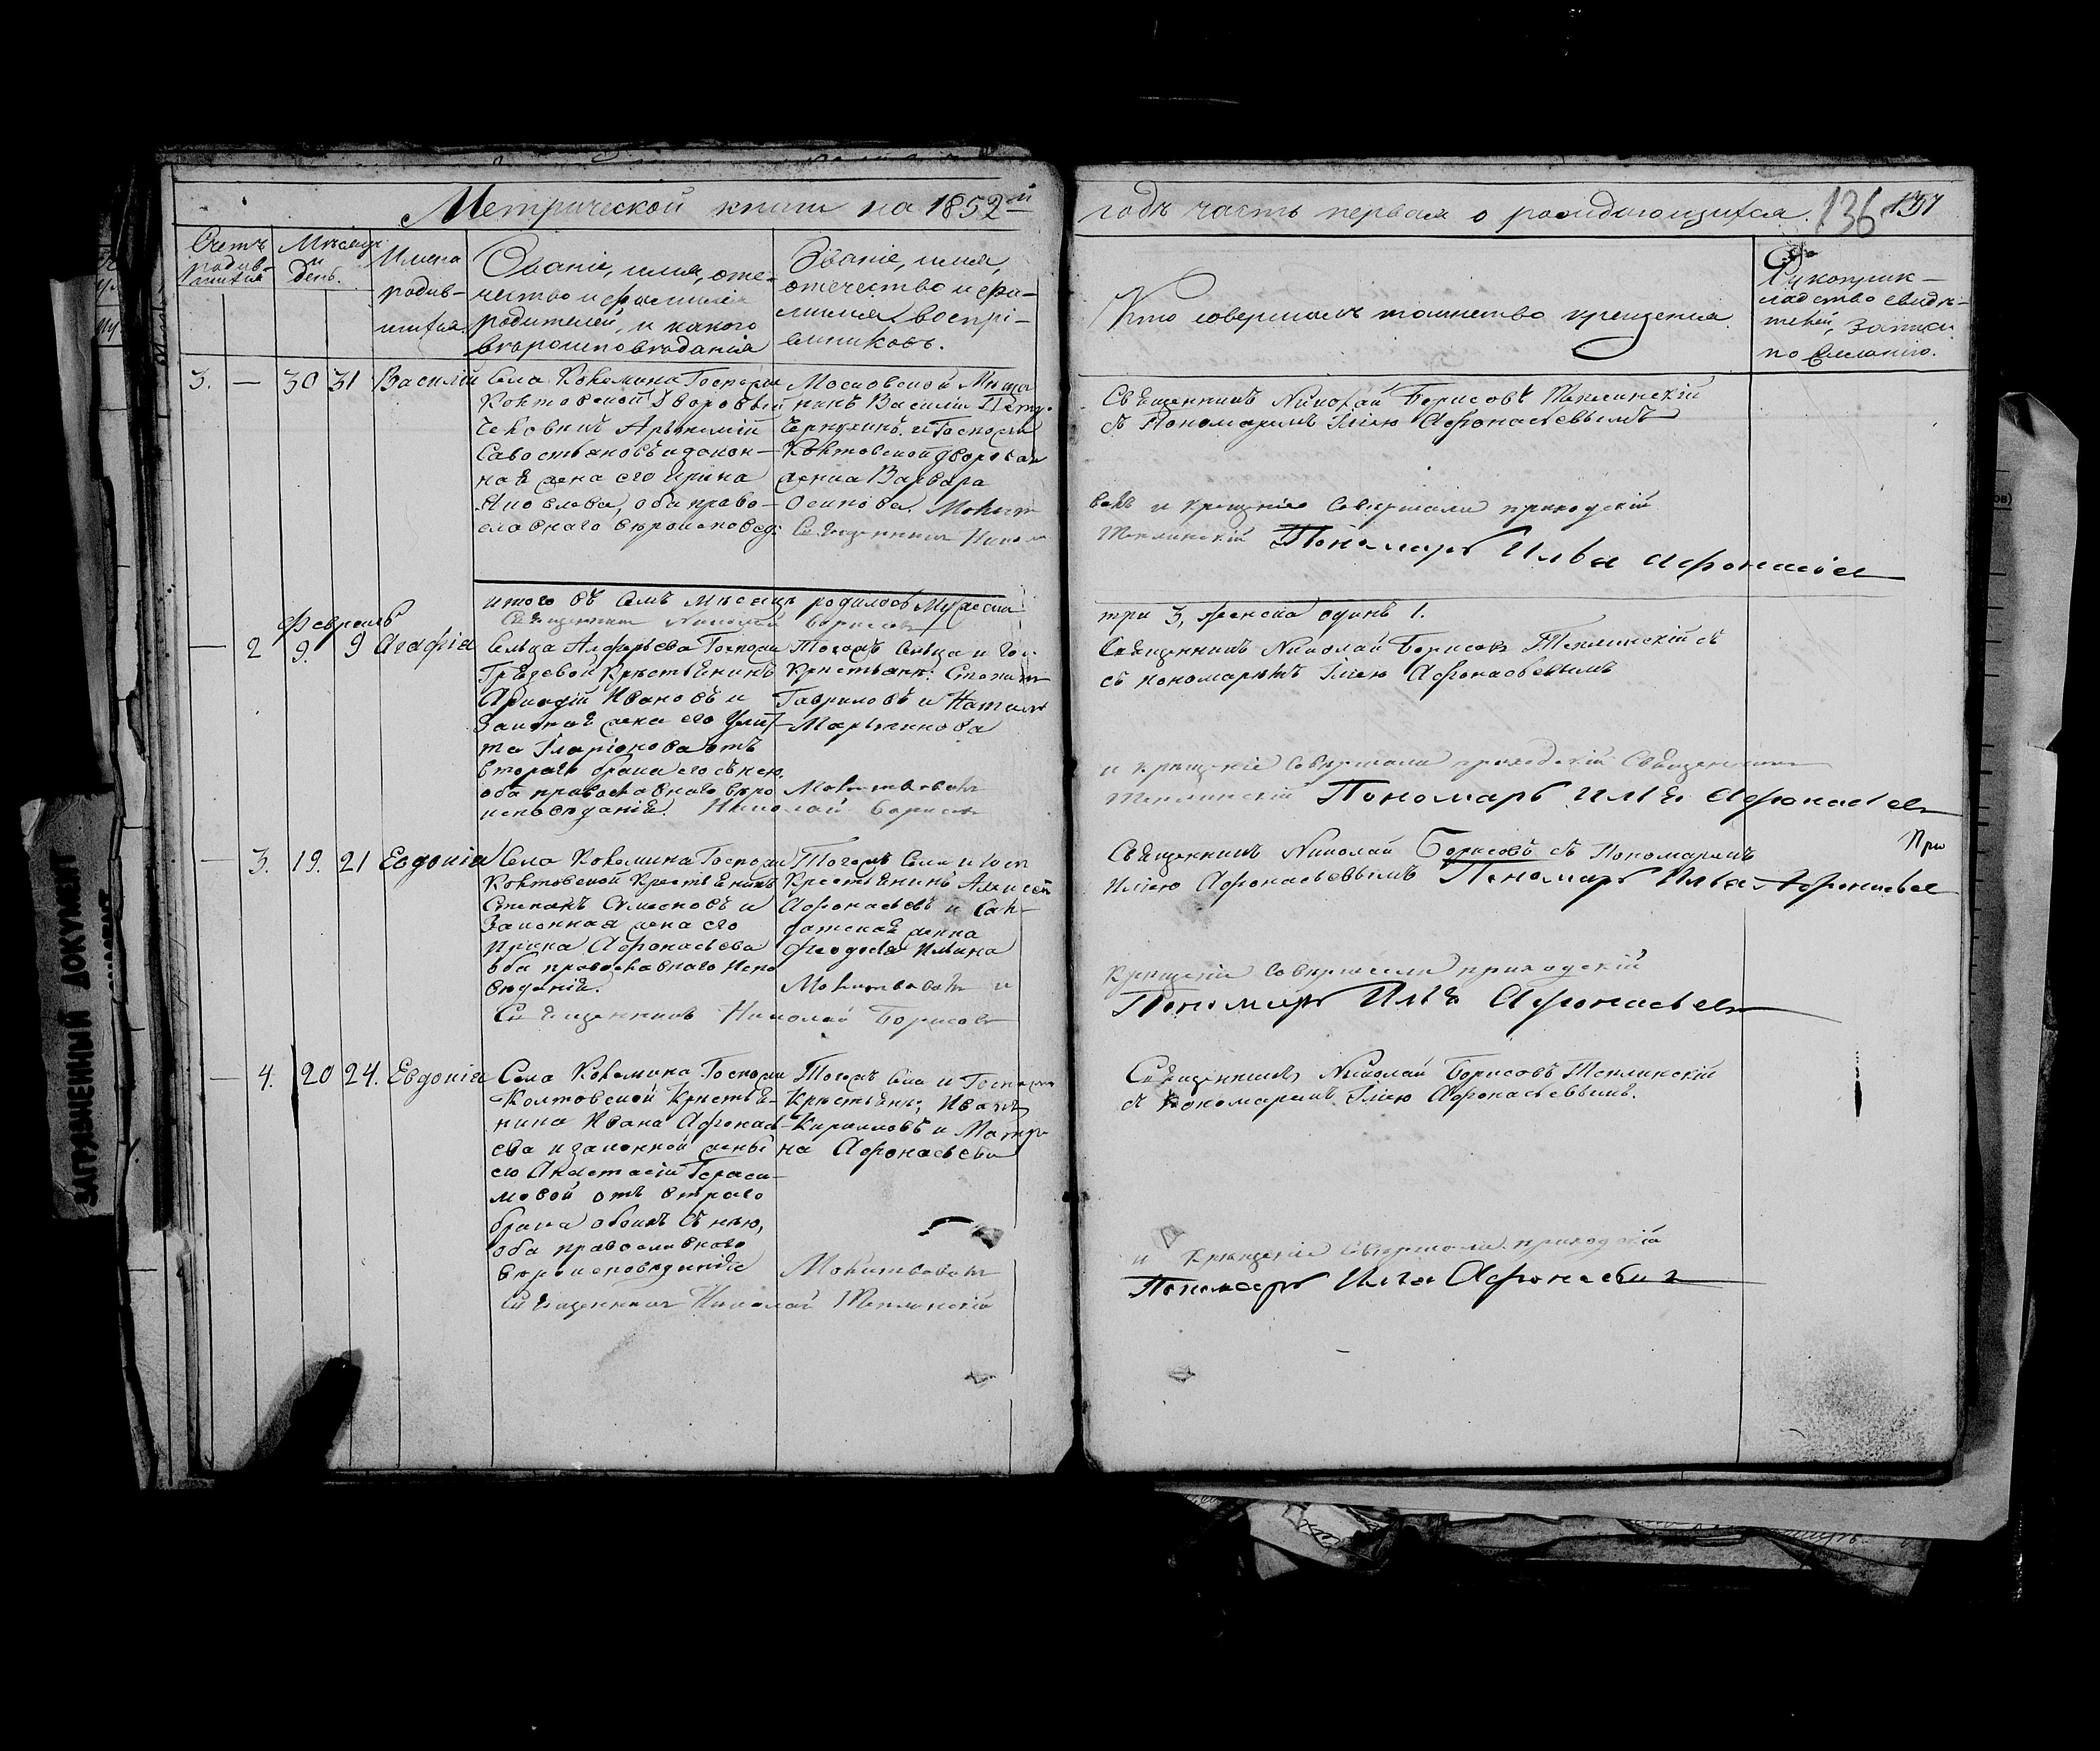 Метрической книги на 1852й
годъ часть первая о рождающихся. 136 137
Счетъ родив-шихся
Мѣсяцъ и день.
Имена родив-шихся.
Званіе, имя, оте-
чество и фамилія
родителей, и какого
вѣроисповѣданія
Званіе, имя,
отечество и фа-
милія воспрі-
емниковъ.
Кто совершалъ таинство крещенія
Рукоприк-
ладство свидѣ-
телей, записи
по желанію.
3. — 30 31 Василій
Села Колемина Госпожи
Колтовской Дворовый
Артемій
Савостьяновъ и закон-
ная жена его Ирина
оба право-
славнаго вѣроисповед:
Московской
Василій
и Госпожи
Колтовской дворовая
женка Варвара
Осипова. Молит
Священникъ Никол
Священникъ Николай Борисовъ Теплинскій
съ Пономаремъ Ильею Афонасьевымъ
валъ и крещеніе совершали приходскій
Теплинскій Пономарь Илья Афонасьев
итого въ семъ мѣсяцѣ родилось Мужеска
три 3, женска одинъ 1.
Священникъ Николай Борисовъ
Февраль
— 2 9. 9 Агафія
Сельца Алферьева Госпожи
Крестьянинъ
Ивановъ и
Законная жена его Ули-
та Иларіонова отъ
втораго брака его съ нею.
оба православнаго вѣро
исповѣданія. Николай Борисовъ
Тогожъ Сельца и Гос.
Крестьян:
Гавриловъ и Наталья
Мартинова
Молитвовалъ
Священникъ Николай Борисовъ Теплинскій съ
съ пономаремъ Ильею Афонасьевымъ
и крещеніе совершали приходскій Священникъ
Теплинскій Пономарь Илья Афонасьев
— 3. 19. 21 Евдокія
Села Колемина Госпожи
Колтовской Крестьянинъ
Степанъ Семеновъ и
Законная жена его
Ирина Афонасьева
оба православнаго испо
вѣданія.
Священникъ Николай Борисовъ
Тогожъ Села и Госп
Крестьянинъ Алексѣй
Афонасьевъ и Сал-
датская женка
Феодосья Ильина
Молитвовалъ и
Священникъ Николай Борисовъ съ Пономаремъ При
Ильею Афонасьевымъ Пономарь Илья Афонасьев
крещеніе совершали приходскій
Пономарь Илья Афонасьев
— 4. 20 24. Евдокія
Села Колемина Госпожи
Колтовской Крестья-
нина Ивана Афонась-
ева и законной жены
его Анастасіи Гераси-
мовой отъ втораго
брака обоихъ съ нею,
оба православнаго
вѣроисповѣданія
Священникъ Николай Теплинскій
Тогожъ Села и Госпожи
Крестьян: Иванъ
Кириловъ и Матре-
на Афонасьева
Молитвовалъ
Священникъ Николай Борисовъ Теплинскій
съ Пономаремъ Ильею Афонасьевымъ.
и крещеніе совершали приходскій
Пономарь Илья Афонасьев
ЗАГРЯЗНЕННЫЙ ДОКУМЕНТ